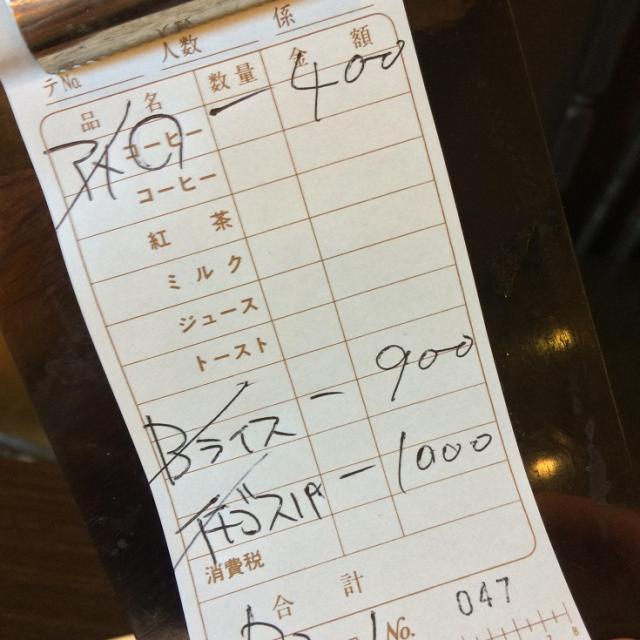 テNo. 人数 係
品名 数量 金額
コーヒー 一 400
コーヒー
紅茶
ミルク
ジュース
トースト
Bライス 一 900
一 1000
消費税
合計
No. 047